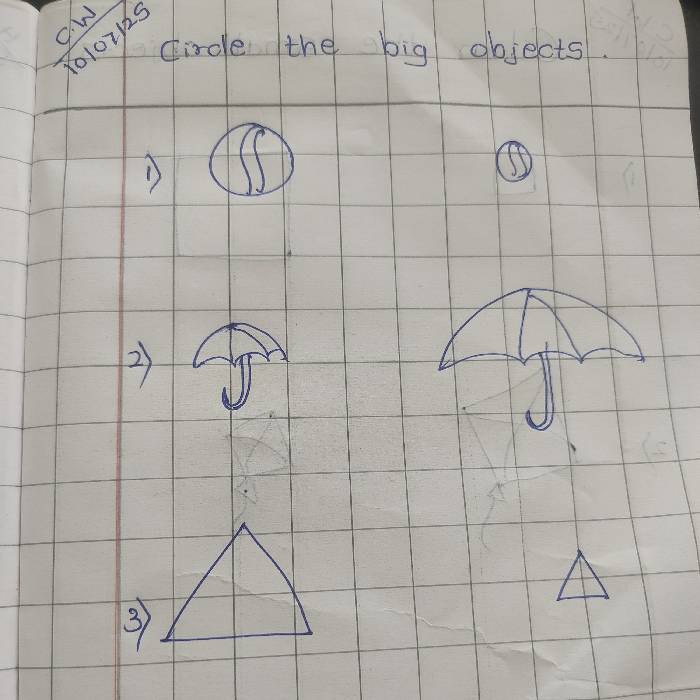 C.W
10/07/25
Circle the big objects.
1)
2)
3)